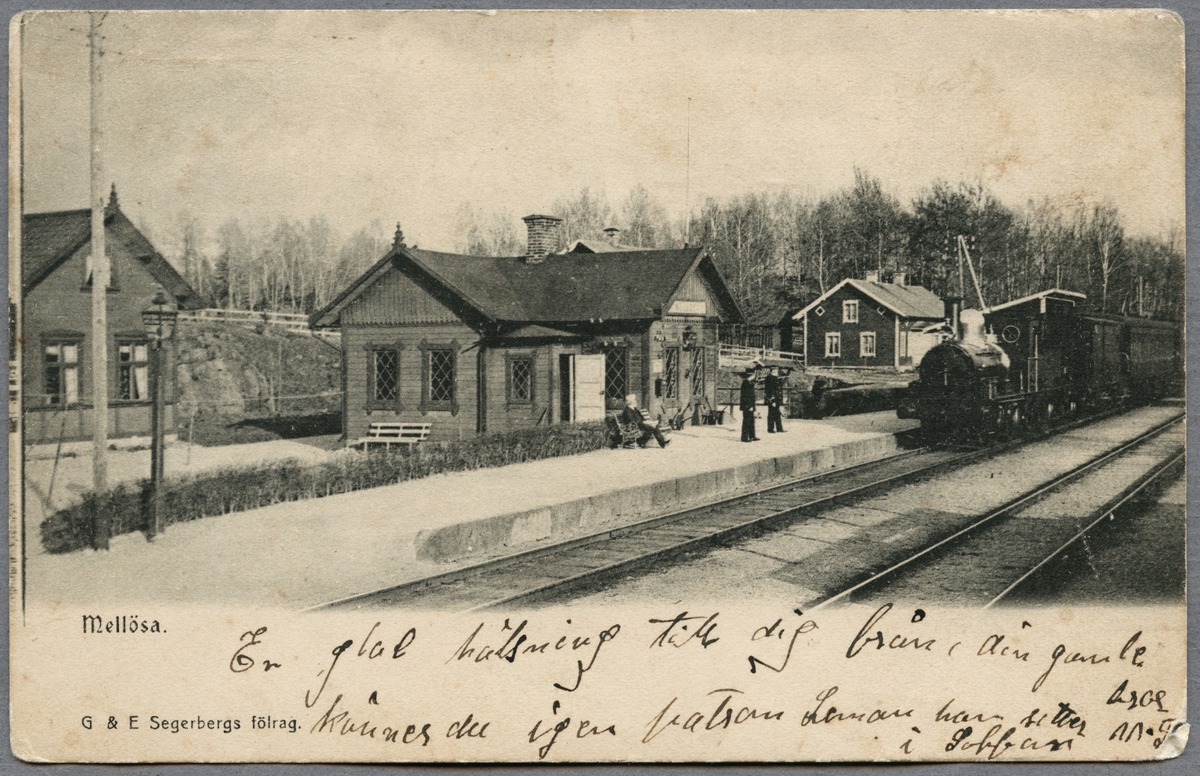 Mellösa.
En glad hälsning till dig från, din gamle
G & E Segerbergs fölrag.
kännes du igen patron Leman han sitter
i Soffan